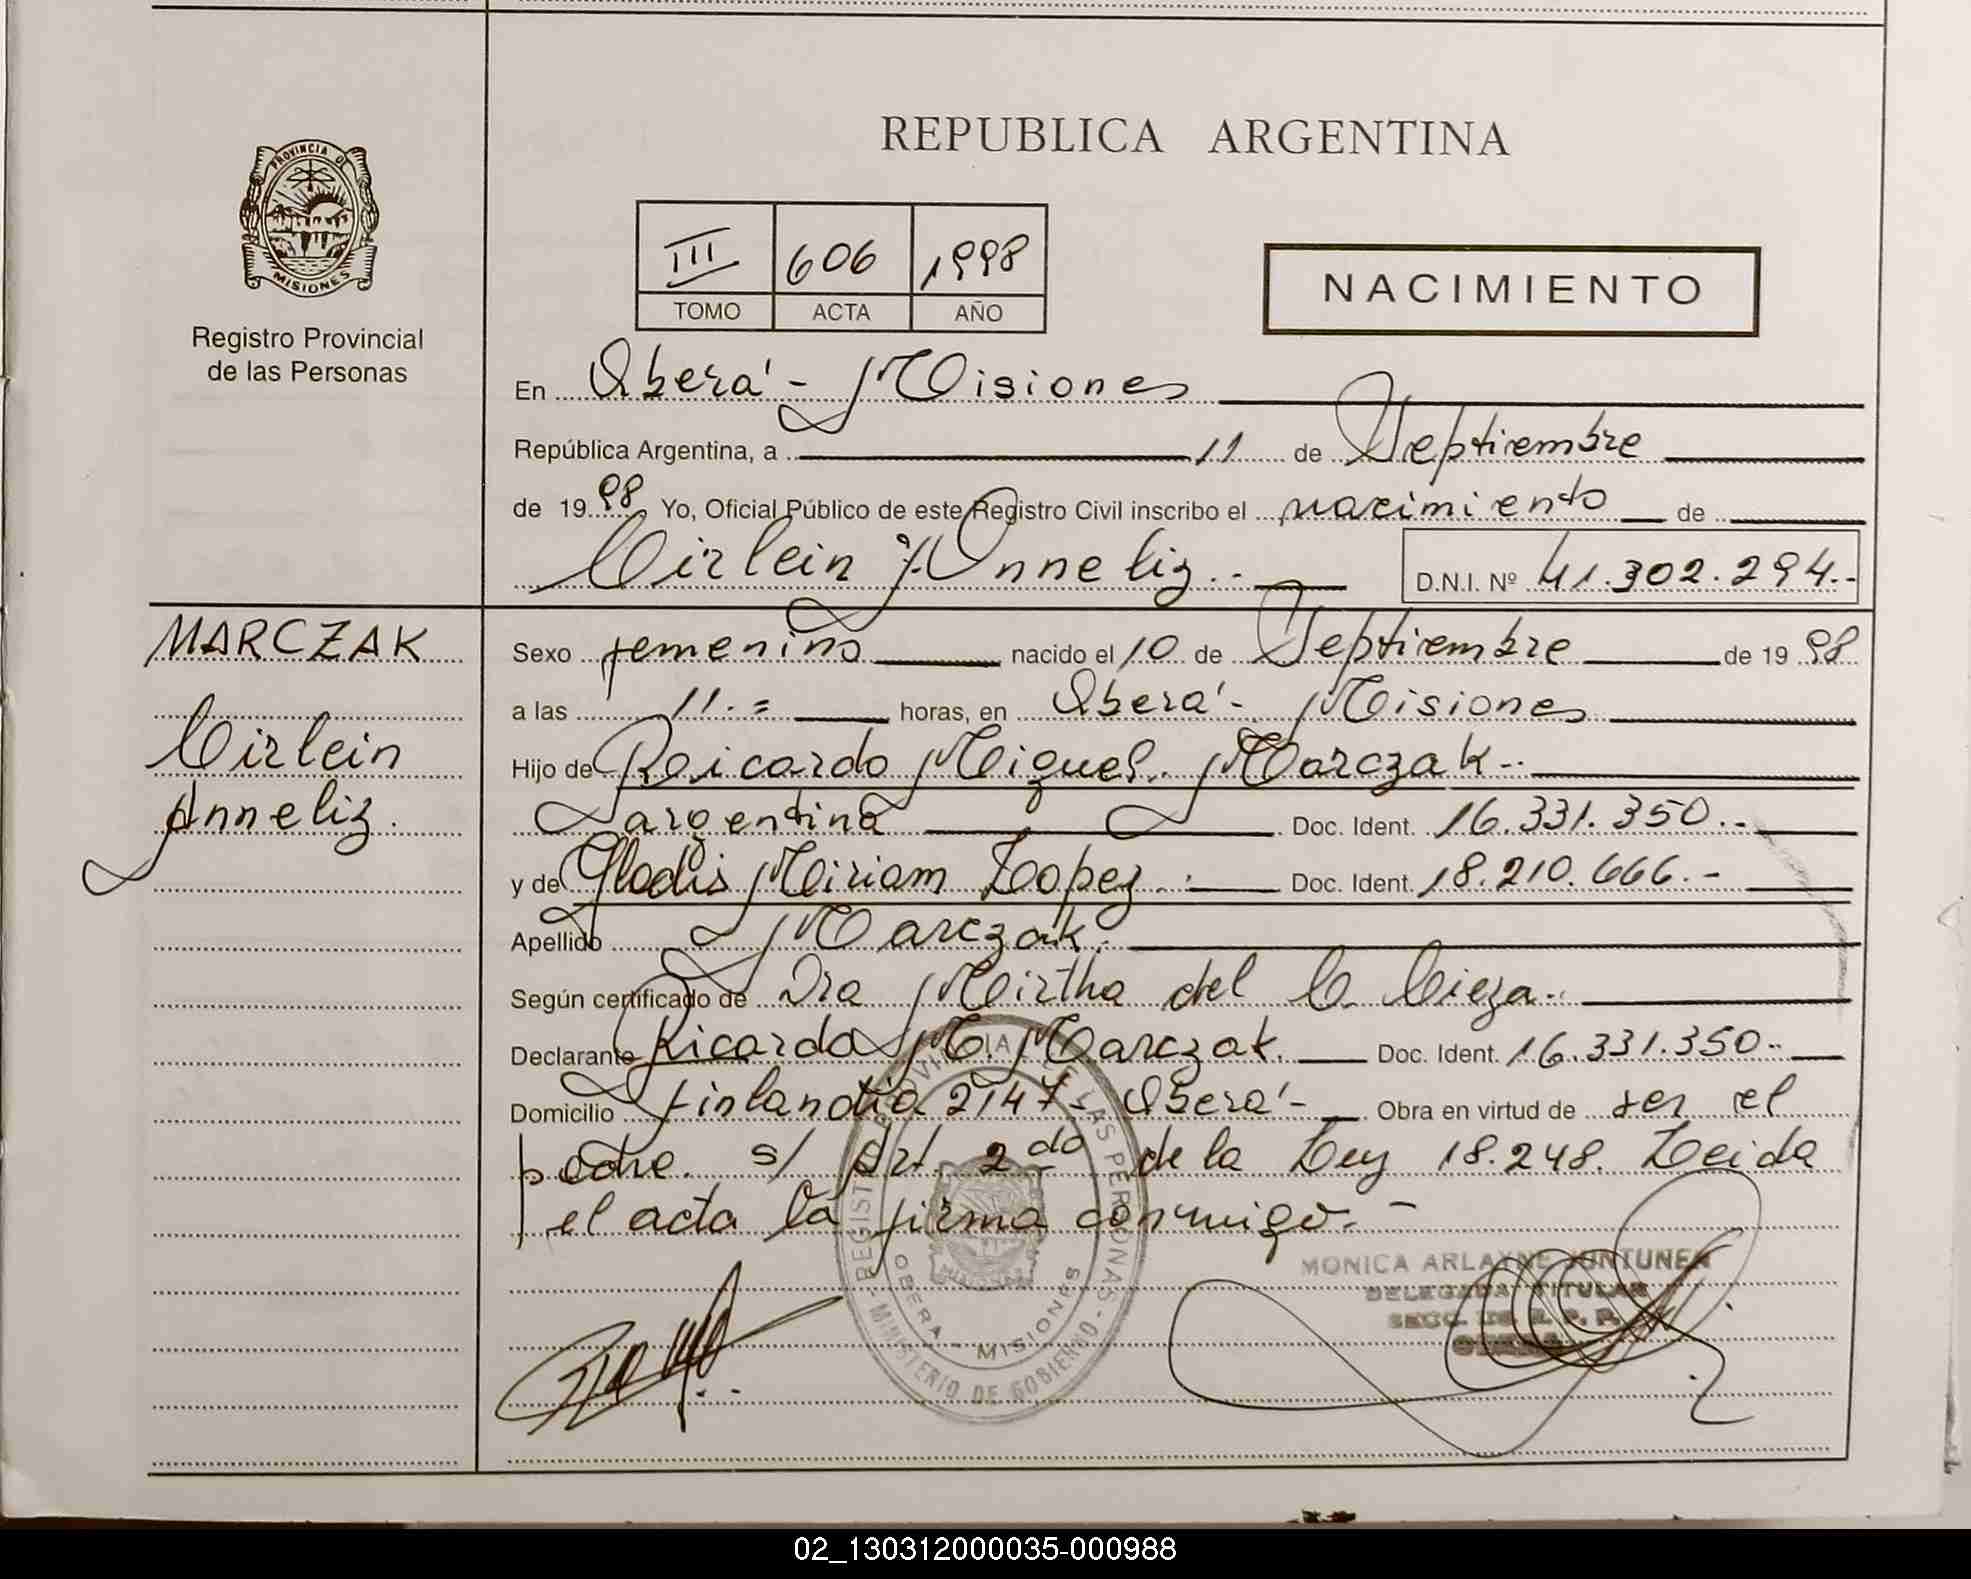 REPUBLICA ARGENTINA
PROVINCIA DE
MISIONES
Registro Provincial
de las Personas
III 606 1998
TOMO ACTA AÑO
NACIMIENTO
En Oberá - Misiones
República Argentina, a 11 de Septiembre
de 1998 Yo, Oficial Público de este Registro Civil inscribo el nacimiento de
Cirlein Anneliz.- D.N.I. Nº 41.302.294.-
MARCZAK
Cirlein
Anneliz.
Sexo femenino nacido el 10 de Septiembre de 1998
a las 11.= horas, en Oberá - Misiones
Hijo de Ricardo Miguel Marczak.-
argentina Doc. Ident. 16.331.350.-
y de Gladis Miriam Lopez.- Doc. Ident. 18.210.666.-
Apellido Marczak.-
Según certificado de Dra Mirtha del C. Cieza.-
Declarante Ricardo M. Marczak. Doc. Ident. 16.331.350.-
Domicilio Finlandia 2147- Oberá - Obra en virtud de ser el
padre. s/ Art. 2do de la Ley 18.248. Leida
el acta la firma conmigo.-
REGISTRO PROVINCIAL DE LAS PERSONAS - MINISTERIO DE GOBIERNO -
OBERA - MISIONES
MONICA ARLAYNE JUNTUNEN
DELEGADA TITULAR
SECC. DE R. P. P.
OBERA
02_130312000035-000988